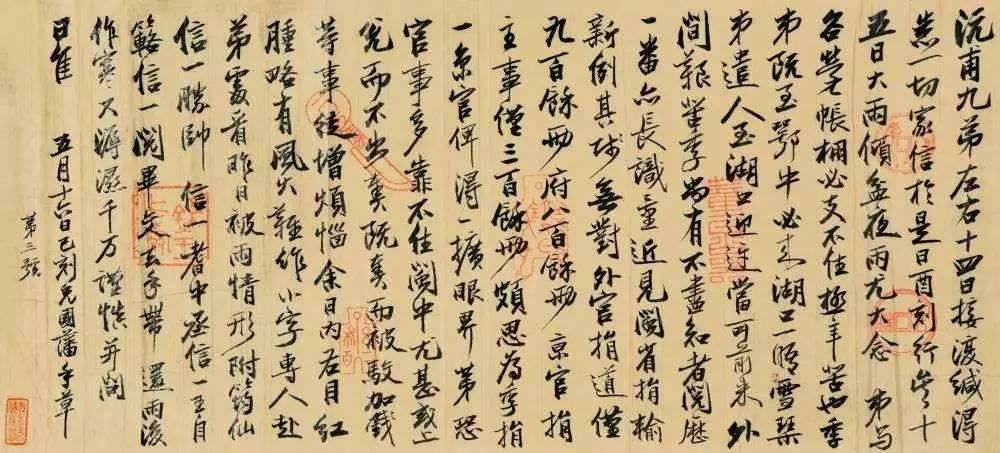 沅甫九弟左右十四日接復緘得
悉一切家信於是日酉刻行矣十
五日大雨傾盆夜雨尤大念弟与
各營帳棚必支不住極辛苦也季
弟既至鄂中必来湖口一晤雪琴
弟遣人至湖口迎迓當可前来外
間艱辛季尚有不盡知者閱歷
一番亦長識量近見閩省捐輸
新例其城無對外官捐道僅
九百餘兩府八百餘兩京官捐
主事僅三百餘兩頗思為季捐
一京官俾得一擴眼界第恐
官事多靠不住閩中尤甚或上
兌而不出奏既奏而被駁加
等事徒增煩惱余日內右目紅
腫略有風火難作小字專人赴
弟處看昨日被雨情形附筠仙
信一勝帥信一耆中丞信一
信一閱畢交去手帶還雨後
作寒又濕千万謹慎并問
日佳 五月十六日巳刻兄國藩手草
第三號